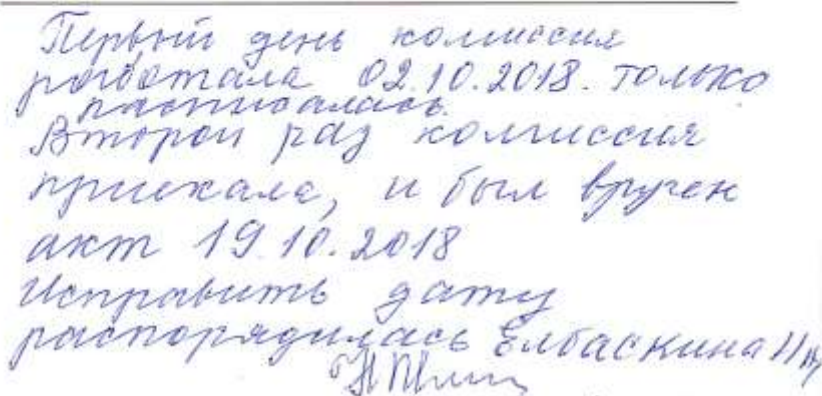 Первый день комиссия
работала 02.10.2018. только
расписалась.
Второй раз комиссия
приехала, и был вручен
акт 19.10.2018
Исправить дату
распорядилась Елбаскина